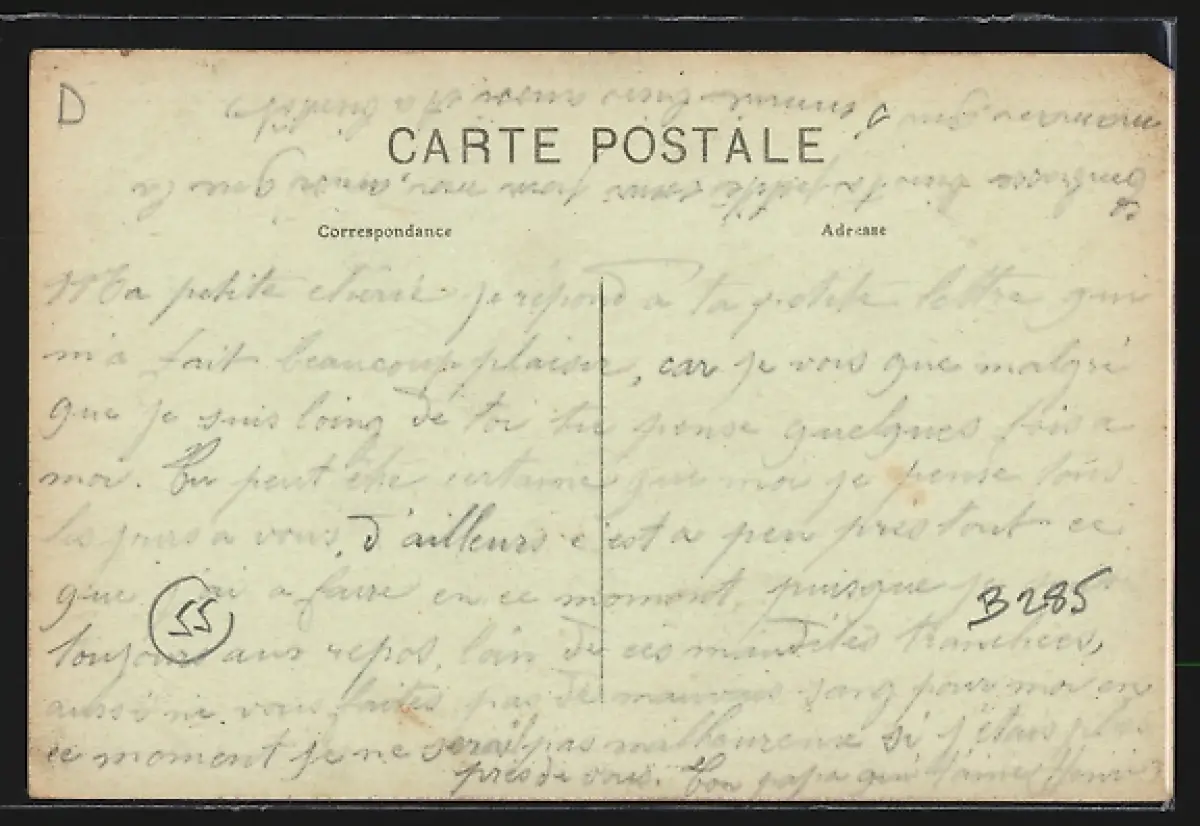 D
CARTE POSTALE
Correspondance
Adresse
Ma petite chérie je répond a ta petite lettre qui
m'a fait beaucoup plaisir, car je vois que malgré
que je suis loing de toi tu pense quelques fois a
moi. Tu peut être certaine que moi je pense tous
les jours a vous, d'ailleurs c'est a peu près tout ce
que j'ai a faire en ce moment, puisque je
55
B 285
toujours aux repos, loin de ces maudites tranchées,
aussi ne vous faites pas de mauvais sang pour moi en
ce moment je ne serait pas malheureux si j'étais plus
près de vous. Ton papa qui t'aime Henri